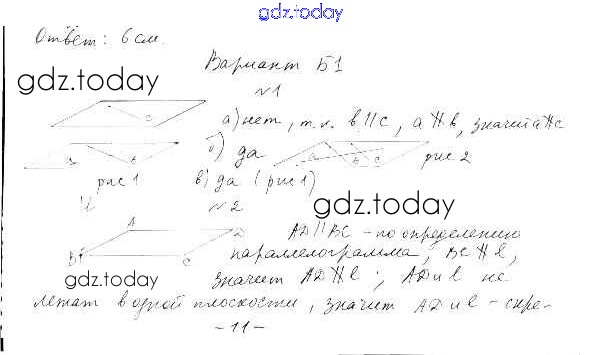 gdz.today
Ответ: 6 см.
Вариант Б1
gdz.today
№1
а) нет, т.к. b || c, a ∦ b, значит a ∦ c
б) да
рис 1
рис 2
в) да (рис 1)
gdz.today
№2
A D
B C
AD || BC - по определению
параллелограмма, BC ∦ l,
gdz.today
значит AD ∦ l; AD и l не
лежат в одной плоскости, значит AD и l - скре-
-11-